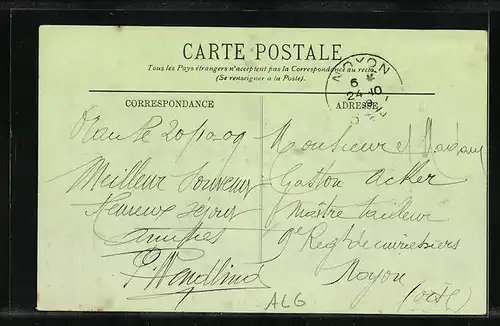 CARTE POSTALE
Tous les Pays étrangers n'acceptent pas la Correspondance au recto.
(Se renseigner à la Poste).
NOYON
6
24-10
CORRESPONDANCE
ADRESSE
20/10-09
Meilleur Souvenir
séjour
amitiés
Monsieur et Madame
Gaston Acker
Maître tailleur
9e Regt de cuirassiers
Noyon
(Oise)
ALG